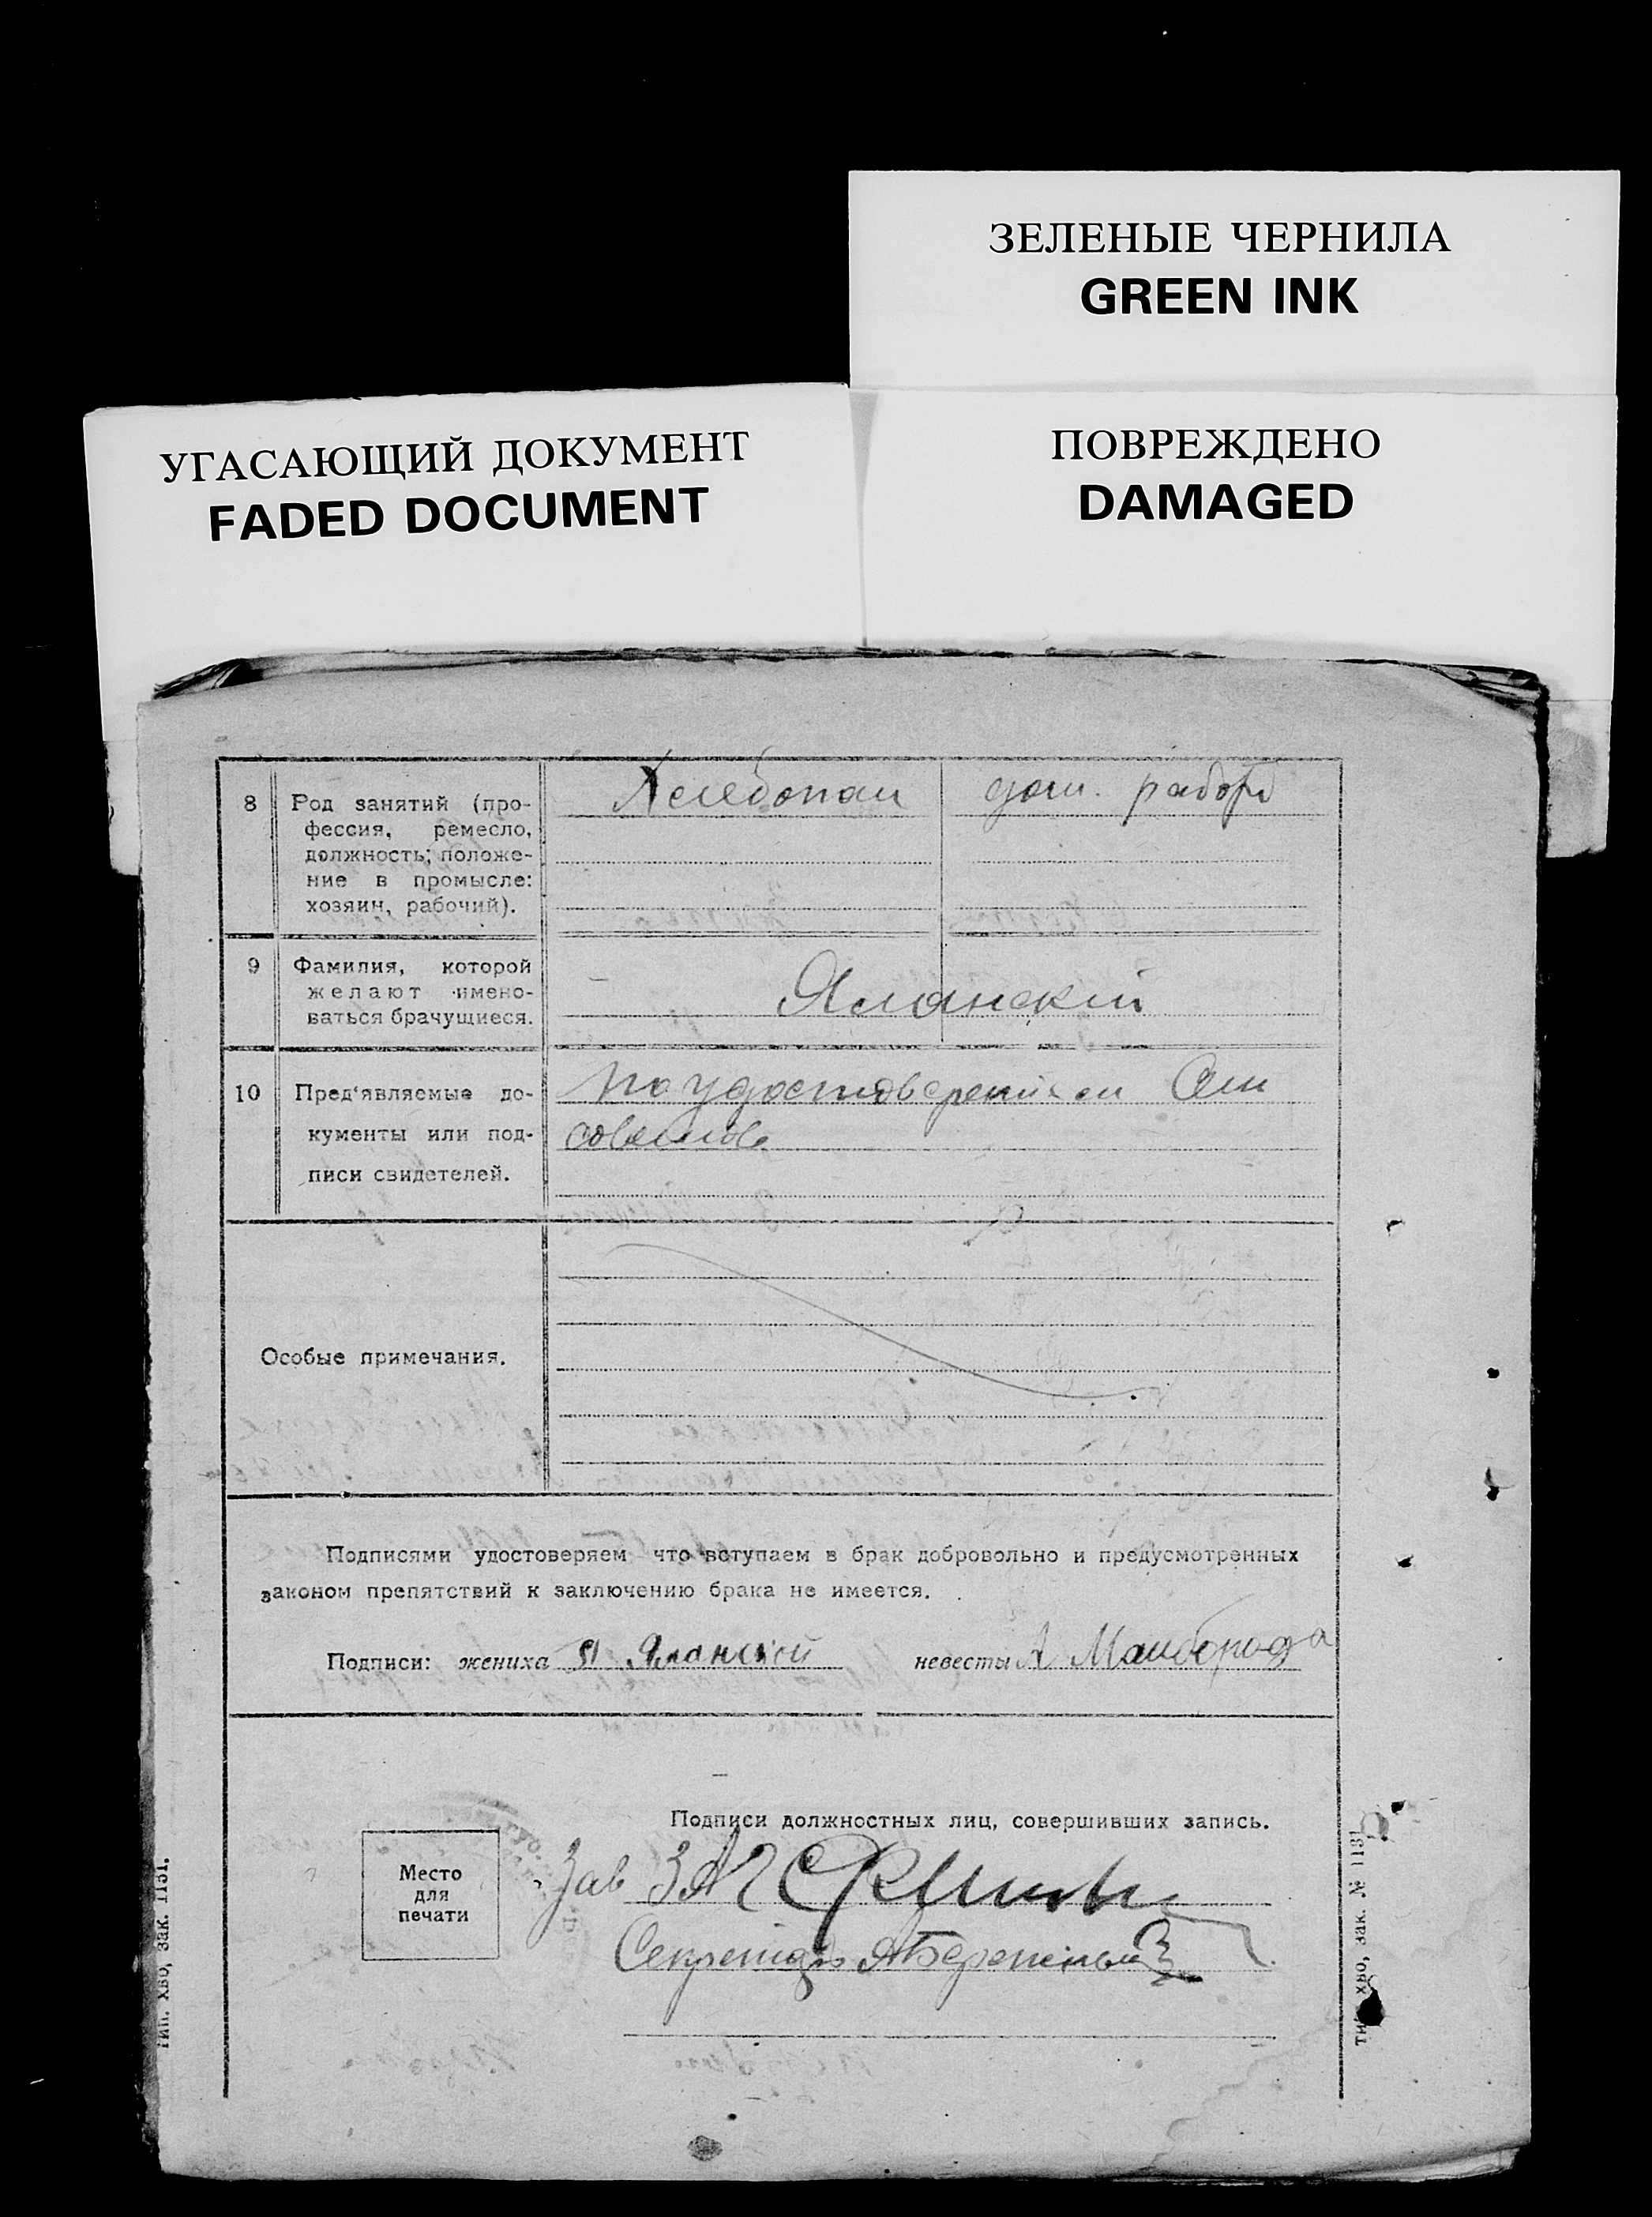 ЗЕЛЕНЫЕ ЧЕРНИЛА
GREEN INK
УГАСАЮЩИЙ ДОКУМЕНТ
FADED DOCUMENT
ПОВРЕЖДЕНО
DAMAGED
8 Род занятий (про-
фессия, ремесло,
должность; положе-
ние в промысле:
хозяин, рабочий).
Хлебопаш дом. работ
9 Фамилия, которой
желают имено-
ваться брачущиеся.
Яланский
10 Пред'являемые до-
кументы или под-
писи свидетелей.
по удостоверениям
советов
Особые примечания.
Подписями удостоверяем что вступаем в брак добровольно и предусмотренных
законом препятствий к заключению брака не имеется.
Подписи: жениха Я Яланской невесты А Майборода
Подписи должностных лиц, совершивших запись.
Место
для
печати
Зав ЗАГС
Секретарь
тип. ХВО, зак. 1131.
тип. ХВО, зак. № 1131